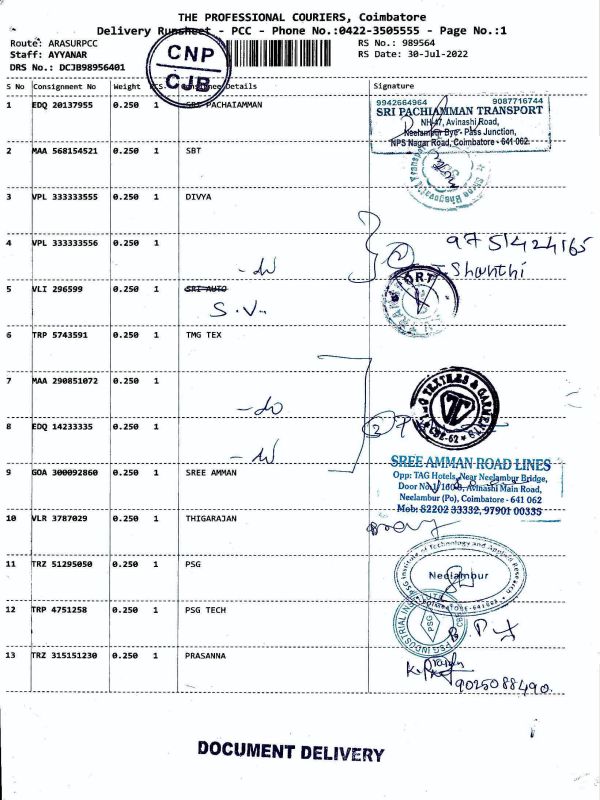 THE PROFESSIONAL COURIERS, Coimbatore
Delivery Runsheet - PCC - Phone No.:0422-3505555 - Page No.:1
Route: ARASURPCC
RS No.: 989564
Staff: AYYANAR
RS Date: 30-Jul-2022
DRS No.: DCJB98956401
CNP
CJB
S No Consignment No Weight PCS. Consignee Details Signature
1 EDQ 20137955 0.250 1 SRI PACHAIAMMAN
9942664964 9087716744
SRI PACHIAMMAN TRANSPORT
NH-47, Avinashi Road,
Neelambur Bye-Pass Junction,
NPS Nagar Road, Coimbatore - 641 062.
2 MAA 568154521 0.250 1 SBT
3 VPL 333333555 0.250 1 DIVYA
4 VPL 333333556 0.250 1
2 9751424165
- Shanthi
5 VLI 296599 0.250 1 SRI AUTO
S.V.
6 TRP 5743591 0.250 1 TMG TEX
7 MAA 290851072 0.250 1
- do
8 EDQ 14233335 0.250 1
9 GOA 300092860 0.250 1 SREE AMMAN
SREE AMMAN ROAD LINES
Opp: TAG Hotels, Near Neelambur Bridge,
Avinashi Main Road,
Neelambur (Po), Coimbatore - 641 062
Mob: 82202 33332, 97901 00335
10 VLR 3787029 0.250 1 THIGARAJAN
11 TRZ 51295050 0.250 1 PSG
PSG Institute of Technology and Applied Research
Neelambur
COIMBATORE-641062
12 TRP 4751258 0.250 1 PSG TECH
PSG INDUSTRIAL INSTITUTE
PSG
13 TRZ 315151230 0.250 1 PRASANNA
9025088490.
DOCUMENT DELIVERY